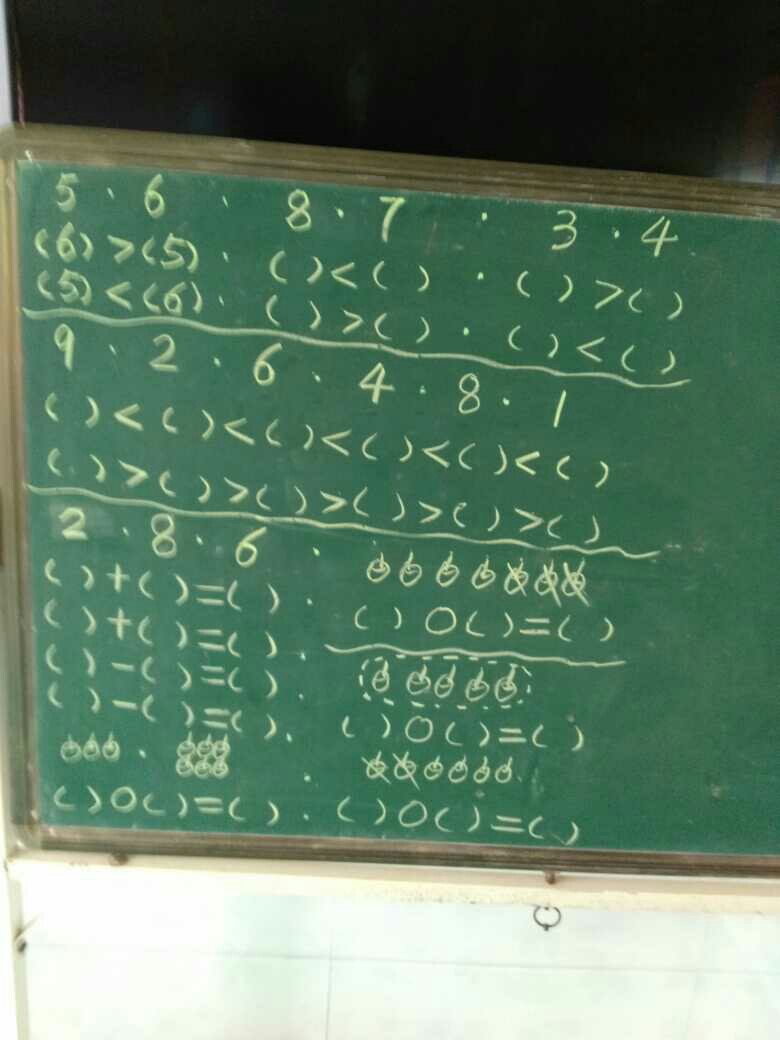 5 . 6 . 8 . 7 . 3 . 4
(6) > (5) . ( ) < ( ) . ( ) > ( )
(5) < (6) . ( ) > ( ) . ( ) < ( )
9 . 2 . 6 . 4 . 8 . 1
( ) < ( ) < ( ) < ( ) < ( ) < ( )
( ) > ( ) > ( ) > ( ) > ( ) > ( )
2 . 8 . 6 .
( ) + ( ) = ( ) .
( ) + ( ) = ( ) .
( ) - ( ) = ( ) .
( ) - ( ) = ( ) .
( ) ○ ( ) = ( ) .
( ) ○ ( ) = ( )
( ) ○ ( ) = ( )
( ) ○ ( ) = ( )